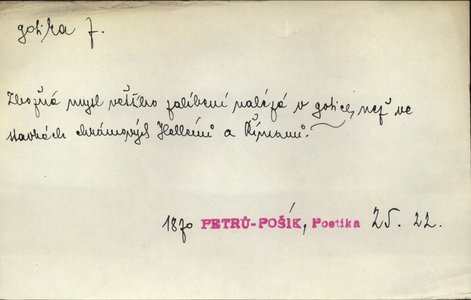 gotika f.
Zbožná mysl většího zalíbení nalézá v gotice, než ve
stavbách chrámových Hellénů a Římanů.
1870 PETRŮ-POŠÍK, Poetika 25. 22.